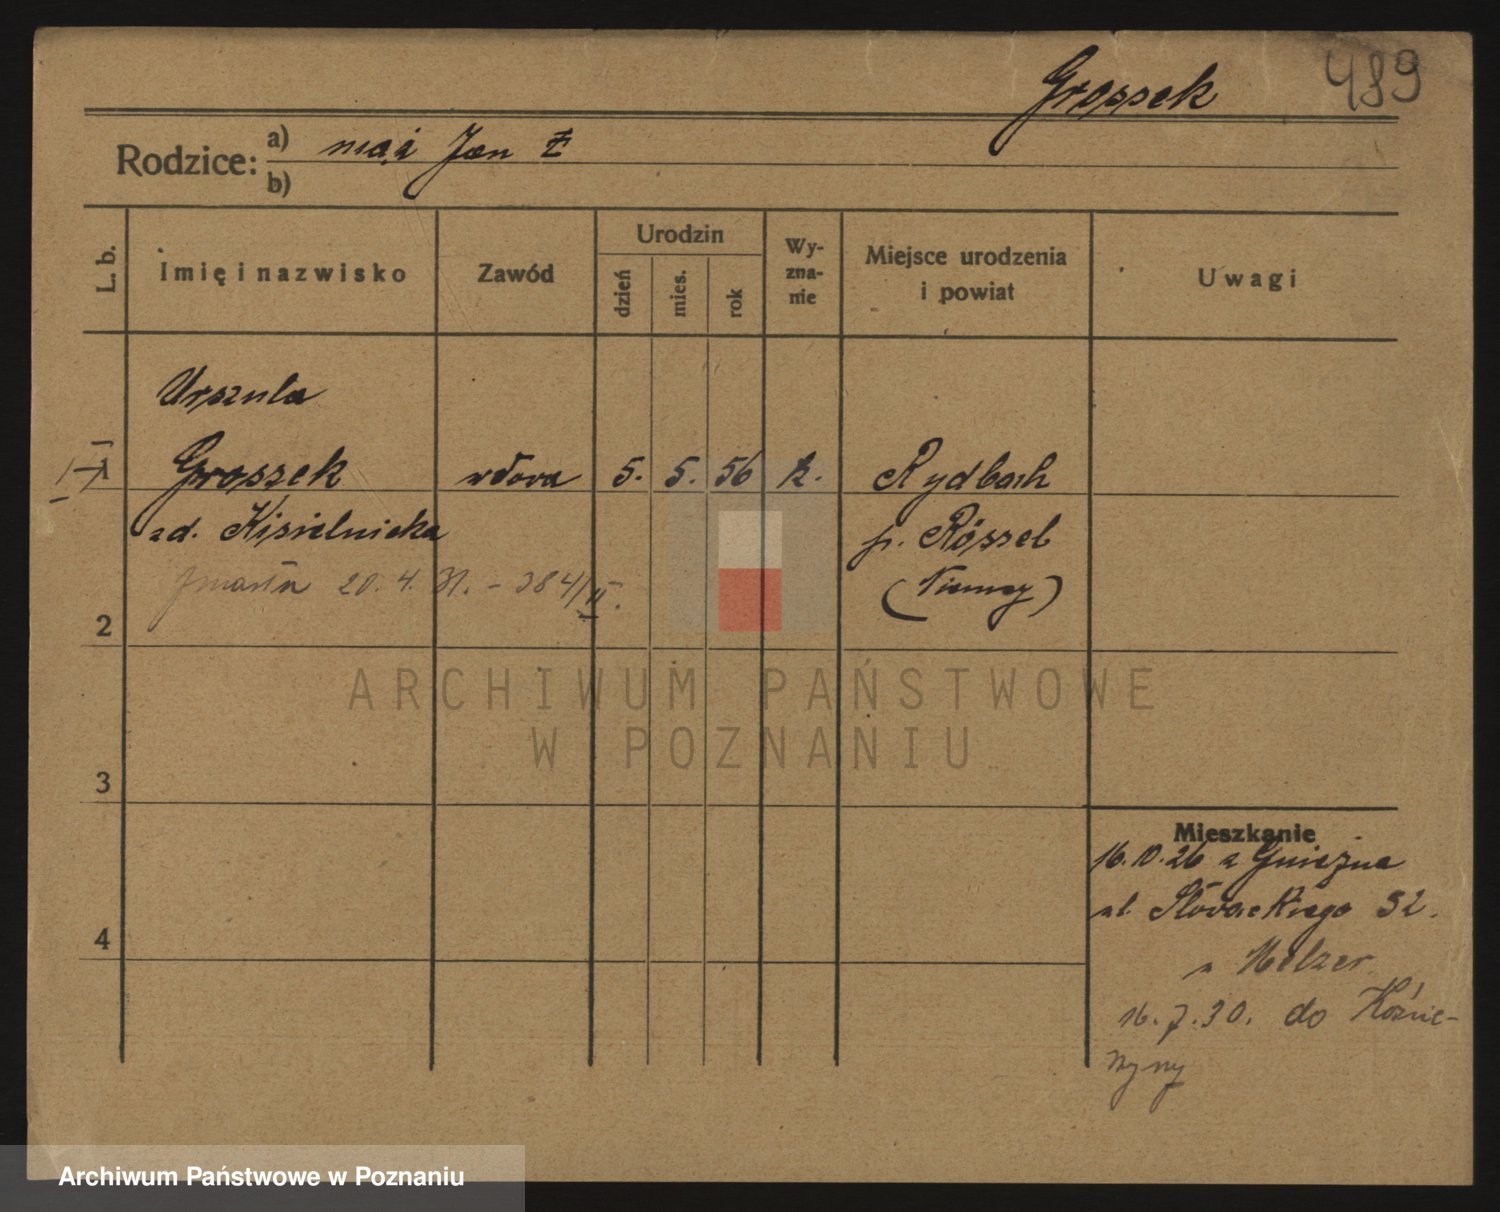 Grossek 489
Rodzice: a) mąż Jan Ł
b)
L. b. Imię i nazwisko Zawód Urodzin dzień mies. rok Wy-zna-nie Miejsce urodzenia i powiat Uwagi
Urszula
1 Groszek wdowa 5. 5. 56 k. Rydbach
zd. Kisielnicka p. Rössel
zmarła 20. 4. 31. - 384/II. (Niemcy)
2
ARCHIWUM PAŃSTWOWE
W POZNANIU
3
Mieszkanie
16.10.26 z Gniezna
ul. Słowackiego 32.
u Melzer
4
16.7.30. do
Archiwum Państwowe w Poznaniu